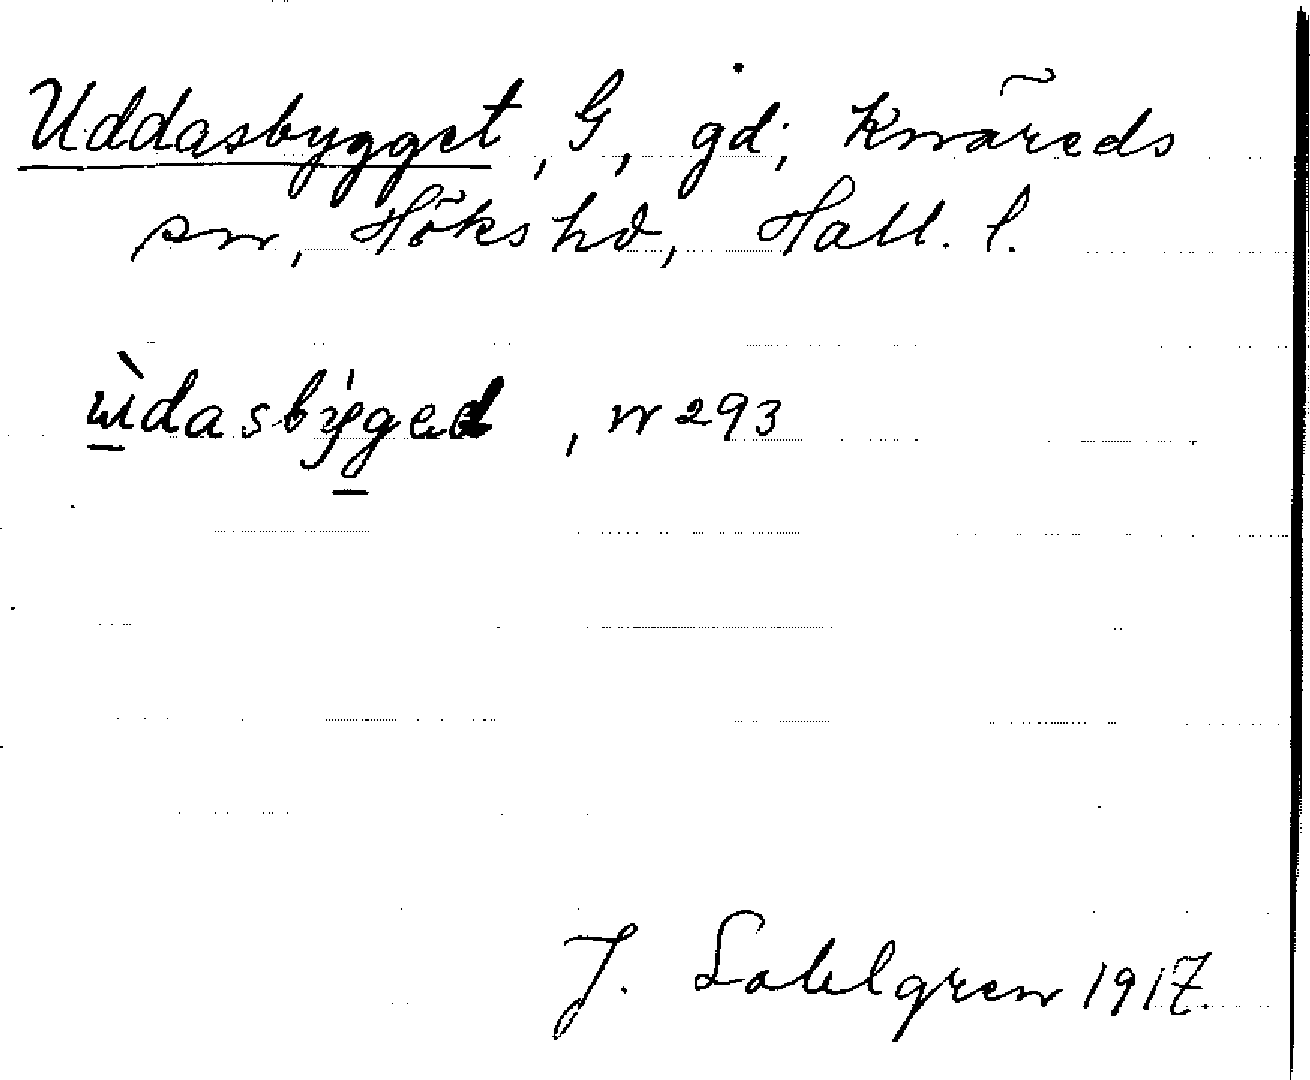 Uddasbygget, G, gd; Knäreds
sn, Höks hd, Hall. l.
ùdasby̍ged, n 293
J. Sahlgren 1917.